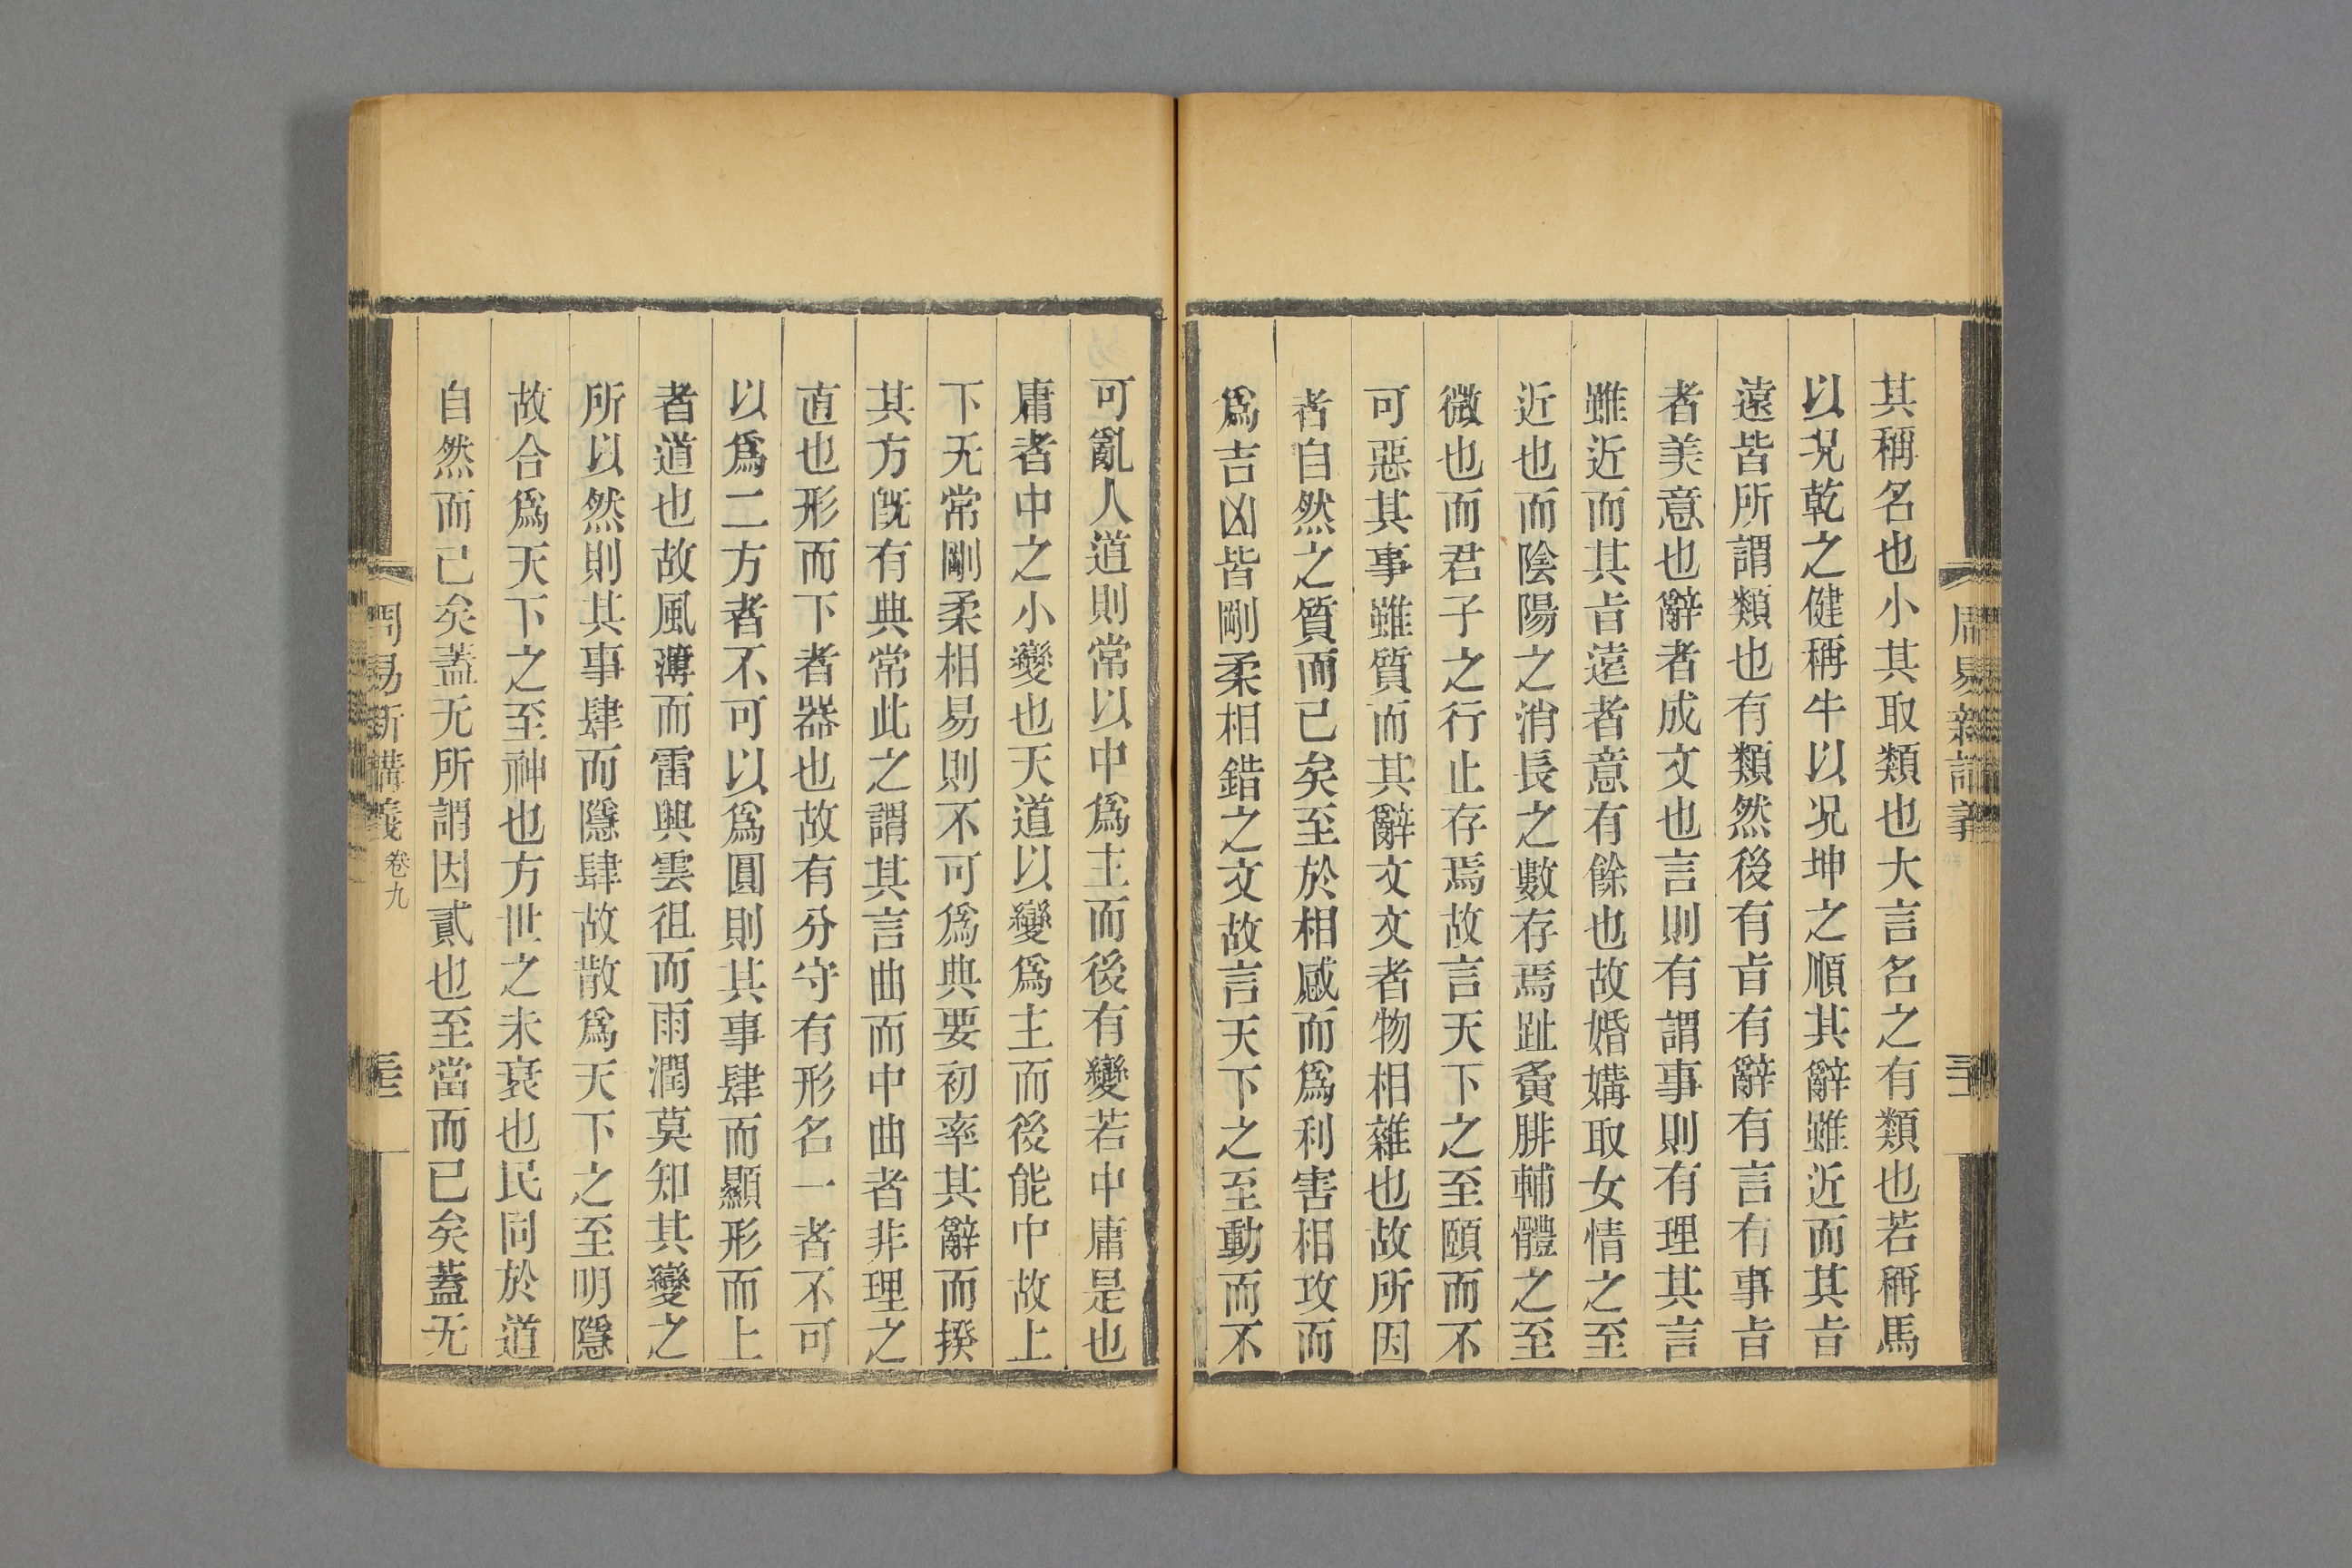 周易新講義
其稱名也小其取類也大言名之有類也若稱馬
以况乾之健稱牛以况坤之順其辭雖近而其㫖
遠皆所謂類也有類然後有㫖有辭有言有事㫖
者美意也辭者成文也言則有謂事則有理其言
雖近而其㫖遠者意有餘也故婚媾取女情之至
近也而陰陽之消長之數存焉趾夤腓輔體之至
微也而君子之行止存焉故言天下之至賾而不
可惡其事雖質而其辭文文者物相雜也故所因
者自然之質而已矣至於相感而爲利害相攻而
爲吉凶皆剛柔相錯之文故言天下之至動而不
可亂人道則常以中爲主而後有變若中庸是也
庸者中之小變也天道以變爲主而後能中故上
下无常剛柔相易則不可爲典要初率其辭而揆
其方旣有典常此之謂其言曲而中曲者非理之
直也形而下者器也故有分守有形名一者不可
以爲二方者不可以爲圓則其事肆而顯形而上
者道也故風薄而雷興雲徂而雨潤莫知其變之
所以然則其事肆而隱肆故散爲天下之至明隱
故合爲天下之至神也方世之未衰也民同於道
自然而已矣蓋无所謂因貳也至當而已矣蓋无
周易新講義 卷九